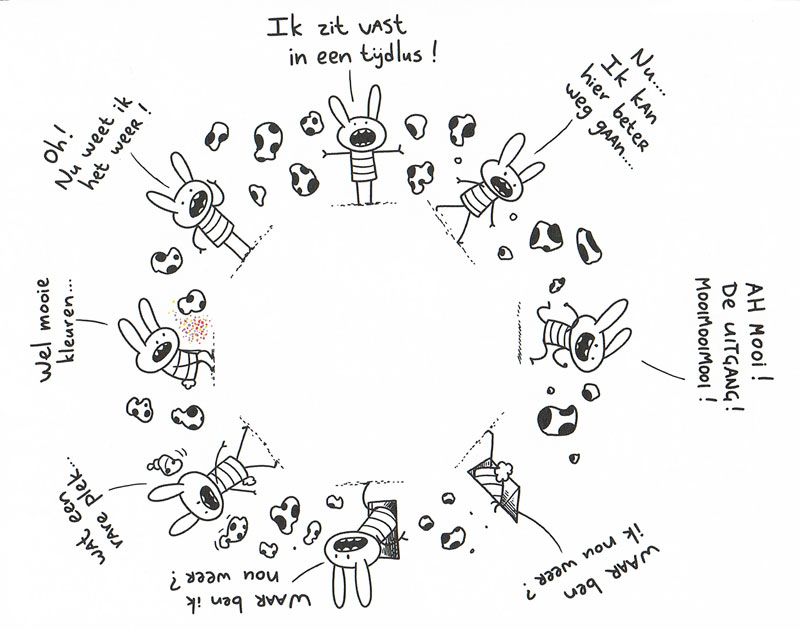 Ik zit vast
in een tijdlus!
Nu....
Ik kan
hier beter
weg gaan....
AH Mooi!
De uitgang!
MooiMooiMooi!
WAAR ben
ik nou weer?
WAAR ben ik
nou weer?
wat een
rare plek...
Wel mooie
kleuren...
Oh!
Nu weet ik
het weer!